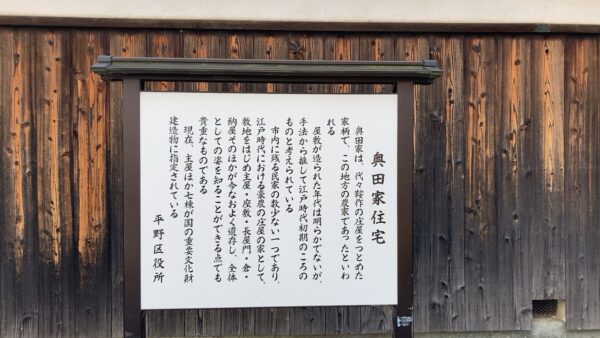 奥田家住宅
奥田家は、代々鞍作の庄屋をつとめた
家柄で、この地方の農家であったといわ
れる
屋敷が造られた年代は明らかでないが、
手法から推して江戸時代初期のころの
ものと考えられている
市内に残る民家の数少ない一つであり、
江戸時代における豪農の庄屋の家として、
敷地をはじめ主屋・座敷・長屋門・倉・
納屋そのほかが今なおよく遺存し、全体
としての姿を知ることができる点でも
貴重なものである
現在、主屋ほか七棟が国の重要文化財
建造物に指定されている
平野区役所